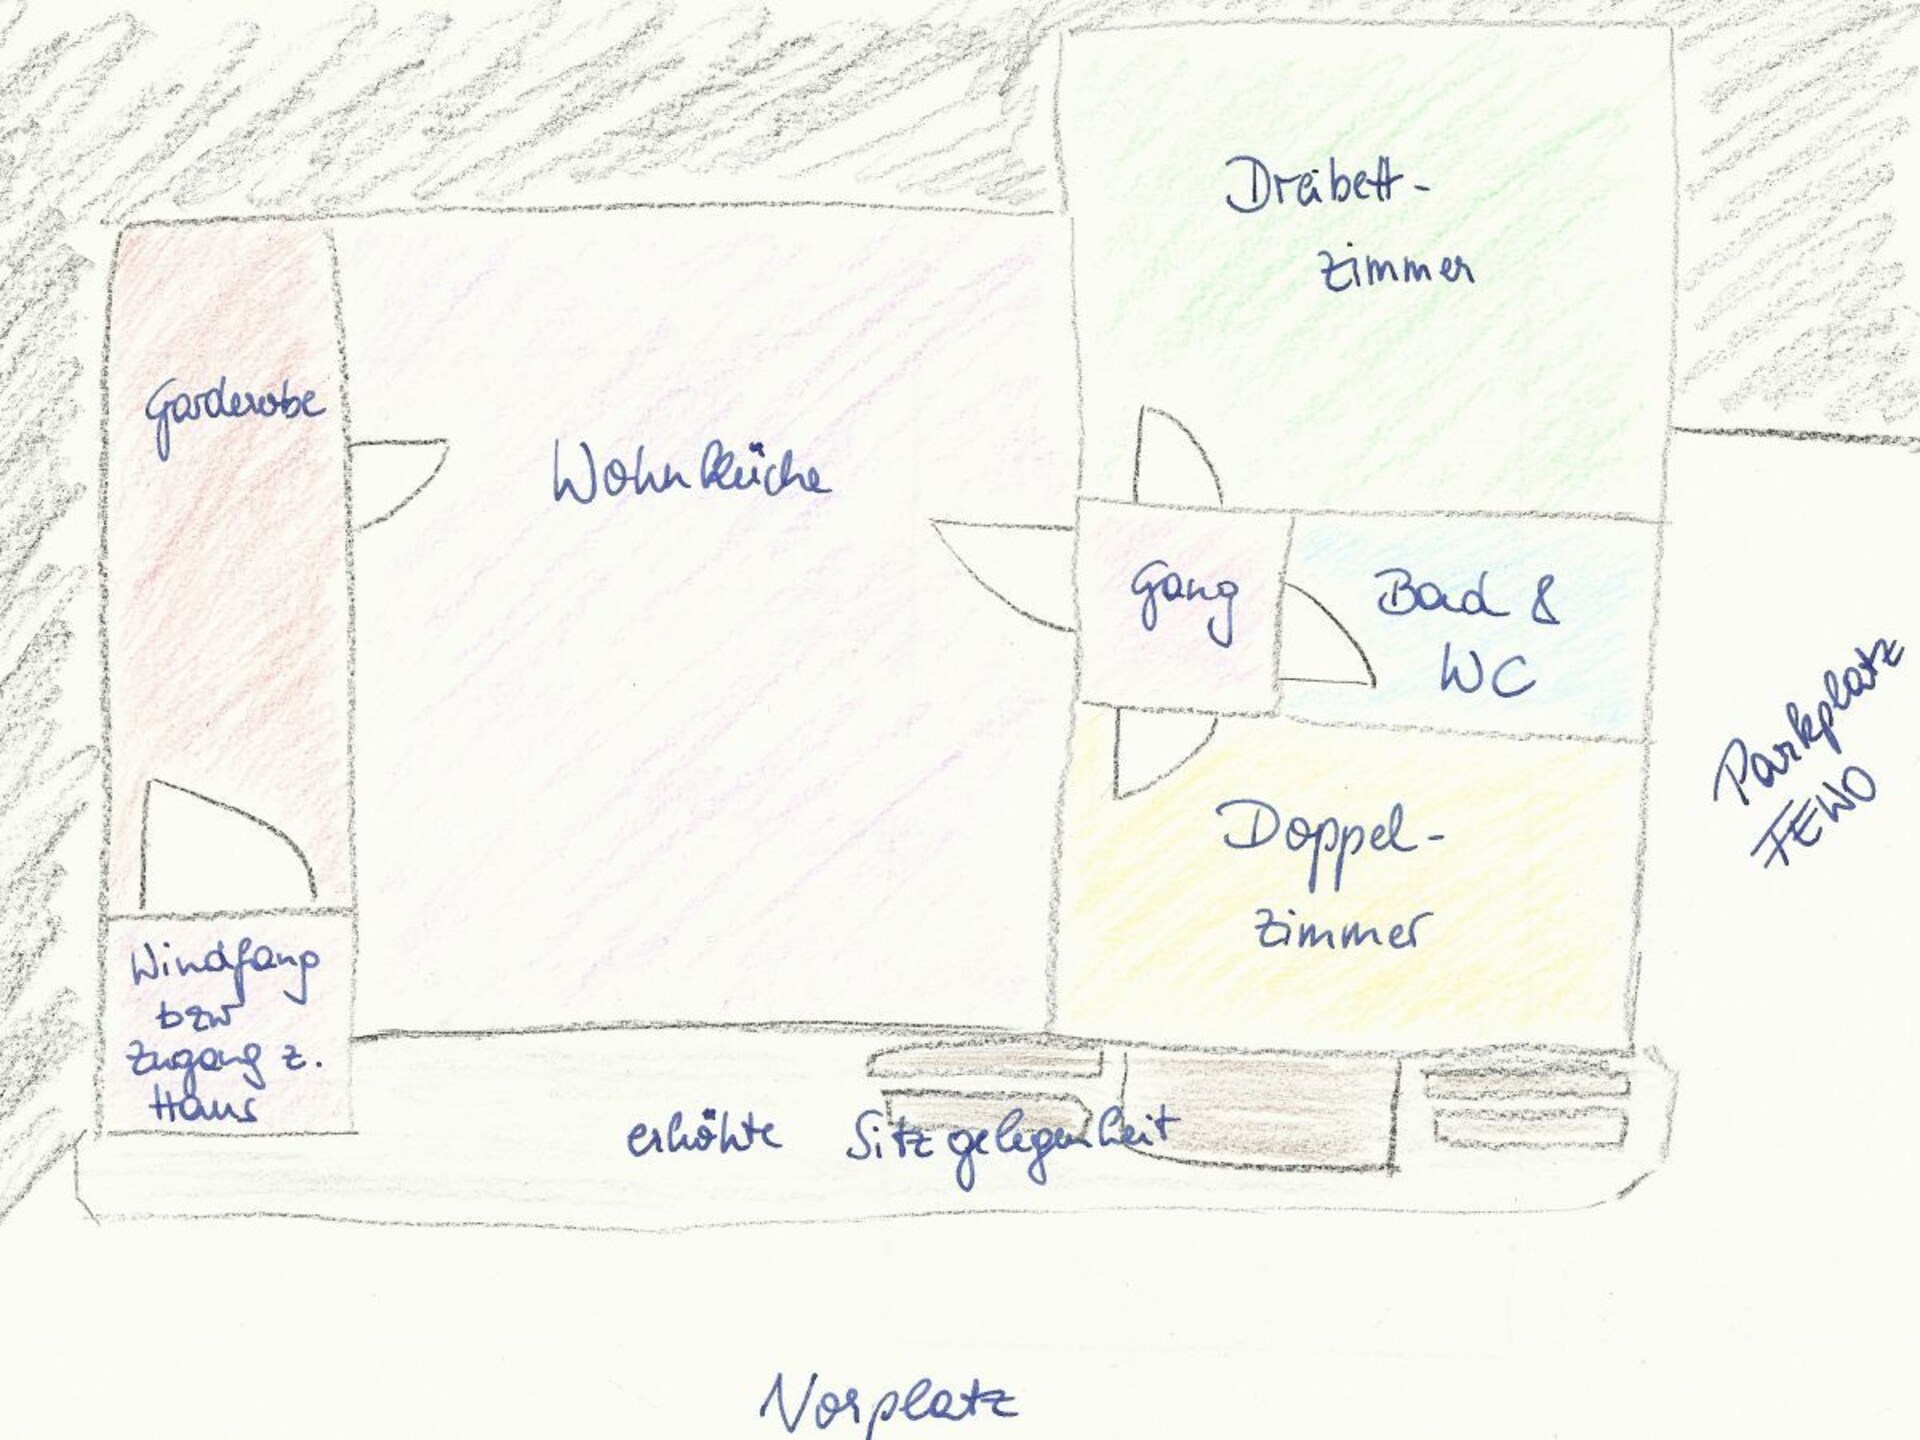 Dreibett-
zimmer
Garderobe
Wohnküche
Gang
Bad &
WC
Parkplatz
FEWO
Doppel-
zimmer
Windfang
bzw
Zugang z.
Haus
erhöhte Sitzgelegenheit
Vorplatz